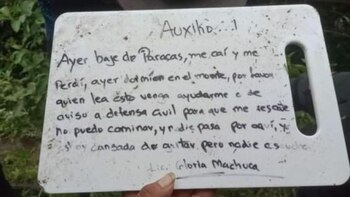 Auxiko...!
Ayer baje de Paracas, me caí y me
Perdí, ayer dormí en el monte, por favor
quien lea ésto venga ayudarme o de
aviso a defensa civil para que me rescate
no puedo caminar, y nadie pasa por aquí, y
estoy cansada de gritar pero nadie escucha
Lic. Gloria Machuca